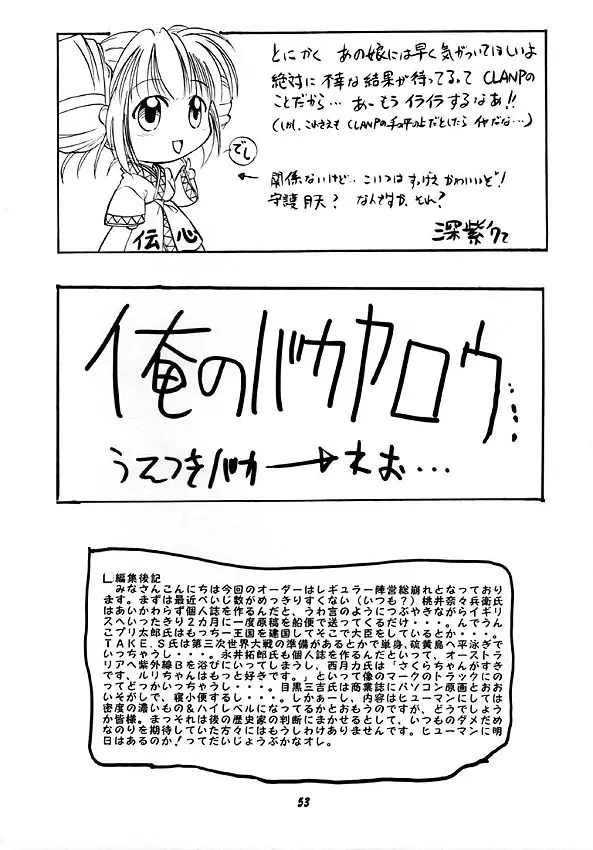 とにかく あの娘には早く気がついてほしいよ
絶対に不幸な結果が待ってるって CLANPの
ことだから… あーもう イライラするなあ!!
(しかし、これさえも CLANPの手の平の上だとしたら イヤだな…)
でし
← 関係ないけど… こいつは すっげえ かわいいぞ!
守護月天? なんですか、それ?
伝 心
深紫
俺のバカヤロウ…
うえつきバカ → ネお…
編集後記
みなさんこんにちは今回のオーダーはレギュラー陣営総崩れとなっており
ます。まずは最近ぺい数がめっきりすくない(いつも?)桃井奈々兵衛氏
はあいかわらず個人誌を作るんだと、うわ言のようにつぶやきながらイギリ
スへいったきり2カ月に一度原稿を船便で送ってくるだけ・・・。んでうん
こプリ太郎氏はもっちー王国を建国してそこで大臣をしているとか・・・。
TAKE.S氏は第三次世界大戦の準備があるとかで単身、硫黄島へ平泳ぎで
いっちゃうし・・・。永井拓郎氏も個人誌を作るんだといって、オーストラ
リアへ紫外線Bを浴びにいってしまうし、西月力氏は「さくらちゃんがすき
です、ルリちゃんはもっと好きです。」といって像のマークのトラックにの
ってどっかいっちゃうし・・・。目黒三吉氏は商業誌にパソコン原画とおお
いそがしで、寝小便するし・・・。しかぁーし、内容はヒューマンにしては
密度の濃いもの&ハイレベルになってるかとおもうのですが、どうでしょう
か皆様。まっそれは後の歴史家の判断にまかせるとして、いつものダメだめ
なのりを期待していた方々にはもうしわけありません。ヒューマンに明
日はあるのか!ってだいじょうぶかなオレ。
53